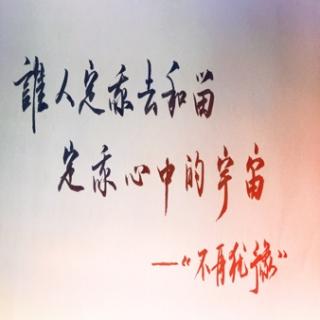 誰人定我去和留
定我心中的宇宙
—“不再犹豫”